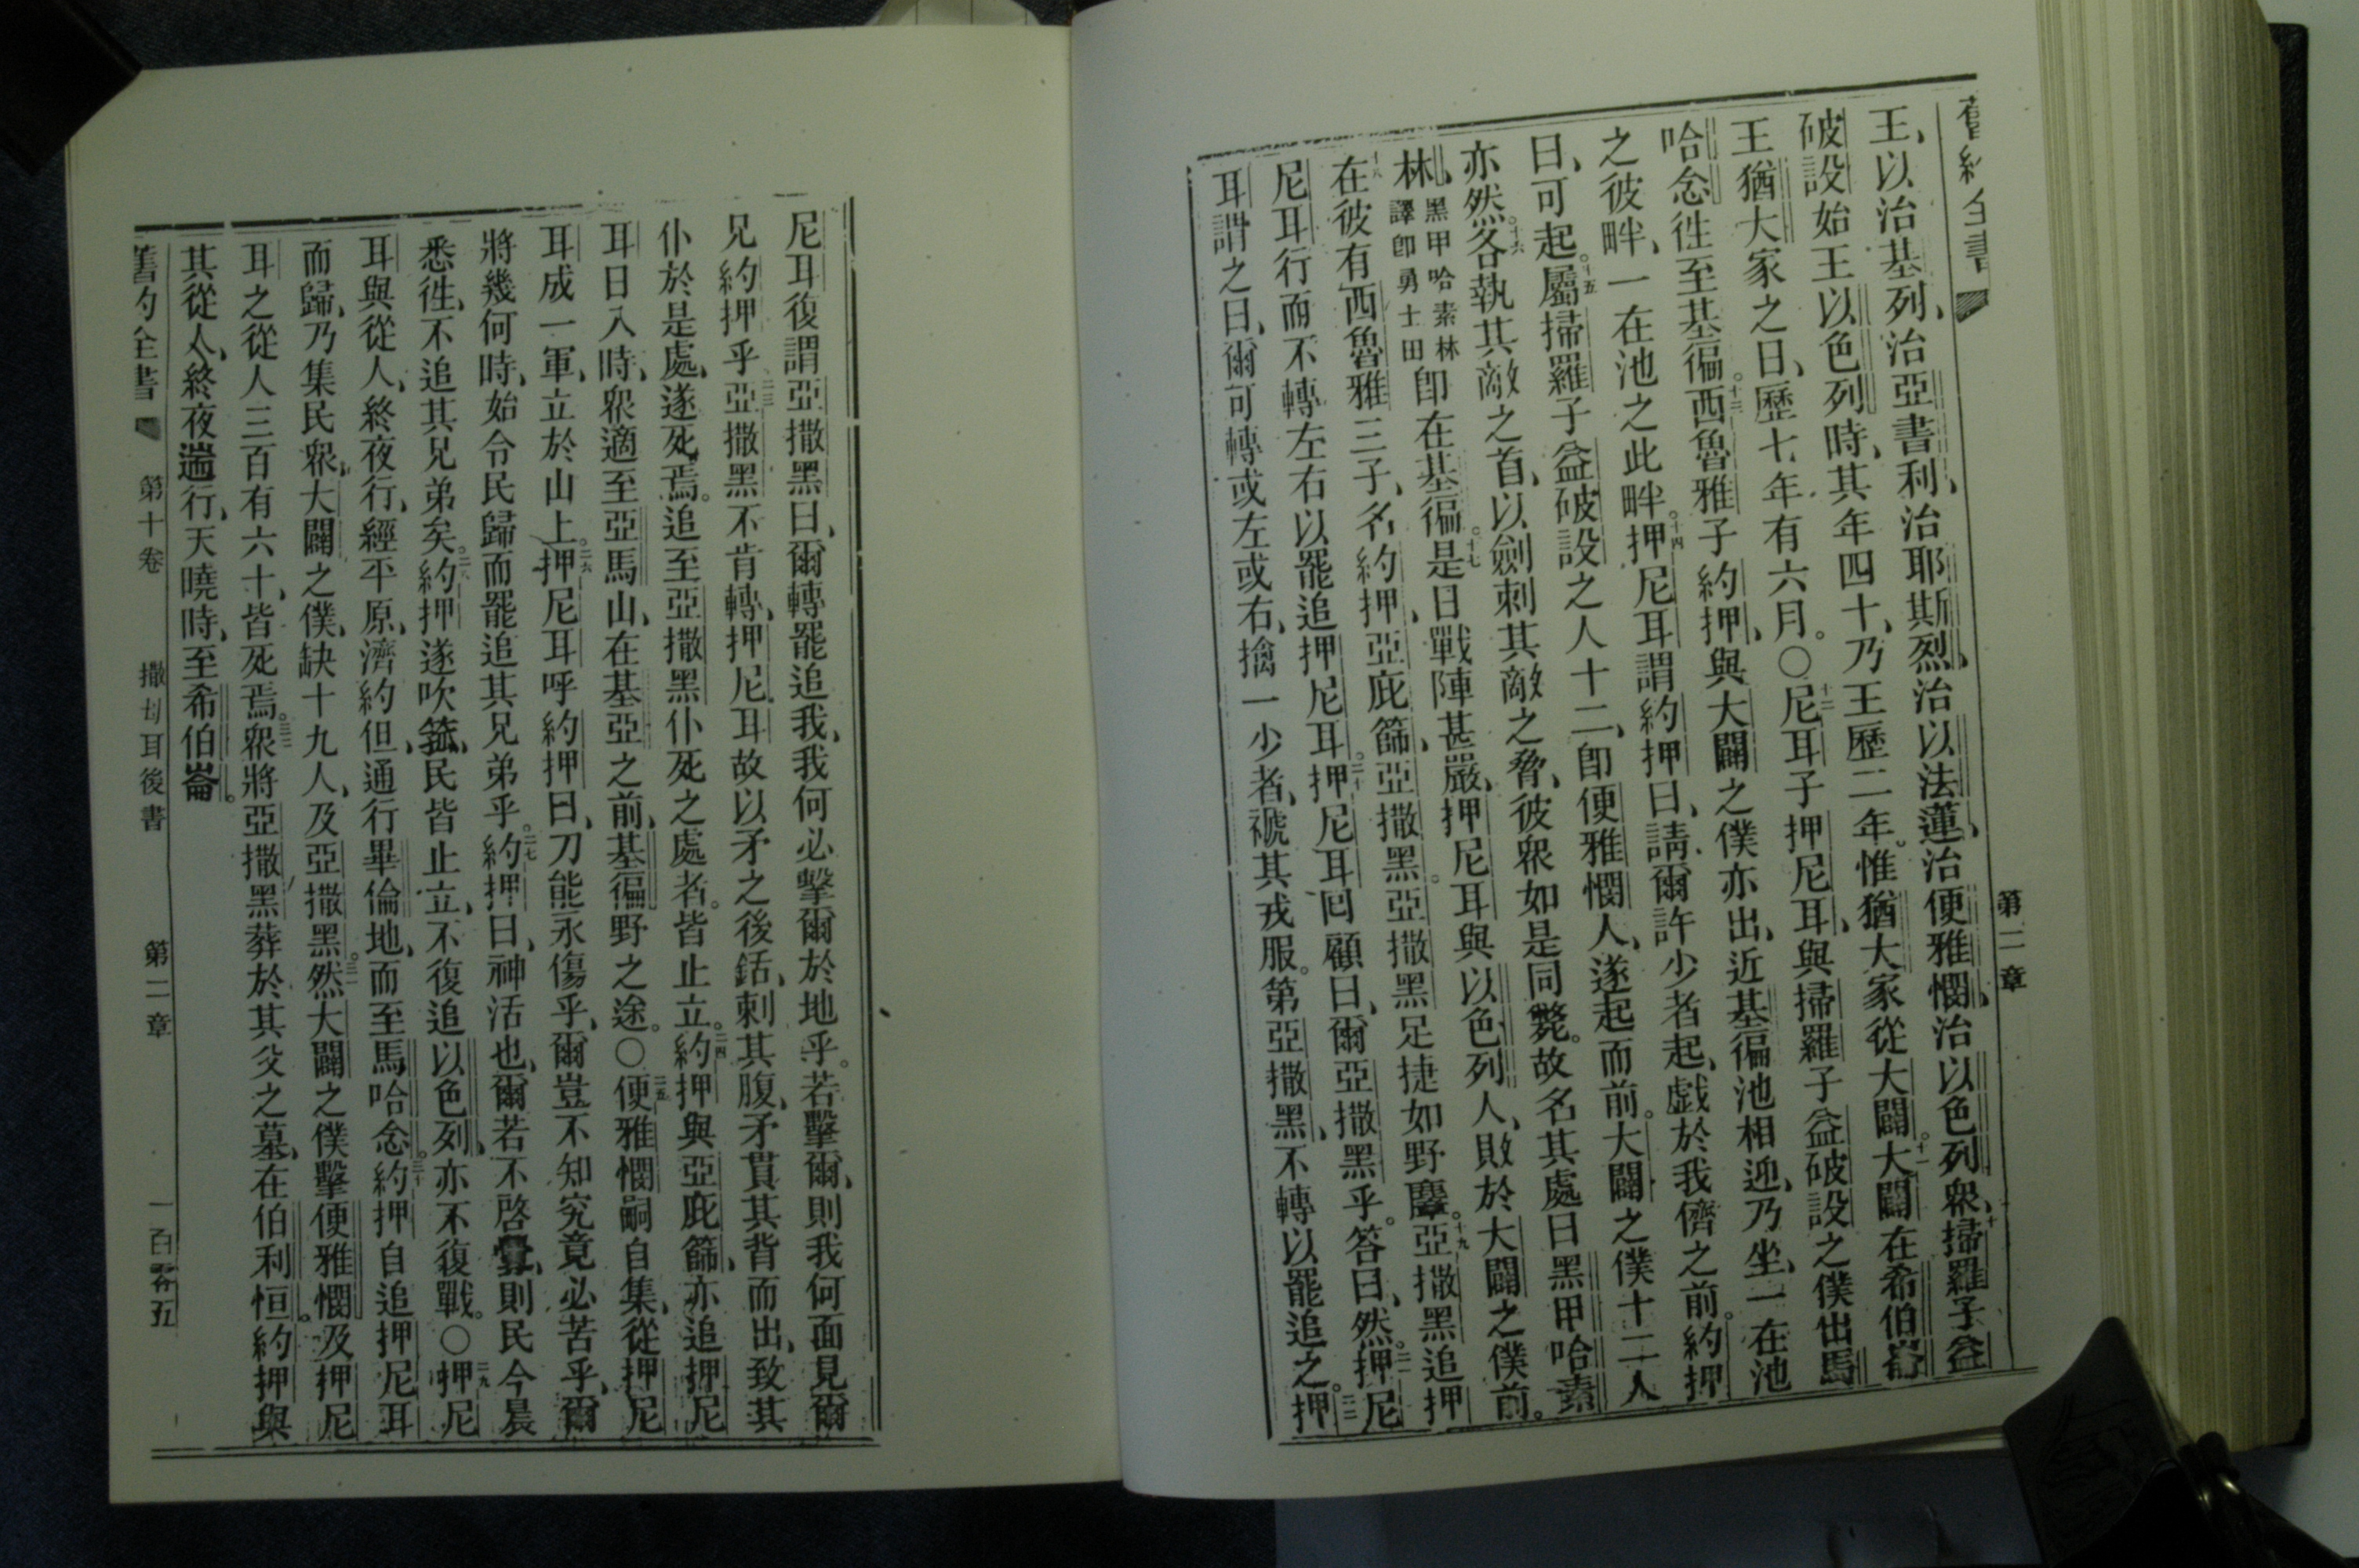 舊約全書
第二章
王、以治基列、治亞書利、治耶斯烈、治以法蓮、治便雅憫、治以色列衆、十掃羅子益
破設始王以色列時、其年四十、乃王歷二年。惟猶大家從大闢。十一大闢在希伯崙
王猶大家之日、歷七年有六月。〇十二尼耳子押尼耳、與掃羅子益破設之僕出馬
哈念徃至基徧。十三西魯雅子約押、與大闢之僕亦出、近基徧池相迎、乃坐、一在池
之彼畔、一在池之此畔。十四押尼耳謂約押曰、請爾許少者起、戲於我儕之前。約押
曰、可起。十五屬掃羅子益破設之人十二、卽便雅憫人、遂起而前。大闢之僕十二人
亦然。十六各執其敵之首、以劍刺其敵之脅、彼衆如是同斃。故名其處曰黑甲哈素
林、黑甲哈素林譯卽勇士田卽在基徧。十七是日戰陣甚嚴、押尼耳與以色列人、敗於大闢之僕前。
十八在彼有西魯雅三子、名約押、亞庇篩、亞撒黑。亞撒黑足捷如野麞。十九亞撒黑追押
尼耳行而不轉左右以罷追押尼耳。二十押尼耳回顧曰、爾亞撒黑乎。答曰、然。二一押尼
耳謂之曰、爾可轉或左或右、擒一少者、褫其戎服。第亞撒黑、不轉以罷追之。二二押
尼耳復謂亞撒黑曰、爾轉罷追我、我何必擊爾於地乎。若擊爾、則我何面見爾
兄約押乎、二三亞撒黑不肯轉、押尼耳故以矛之後銛、刺其腹、矛貫其背而出、致其
仆於是處、遂死焉。追至亞撒黑仆死之處者。皆止立。二四約押與亞庇篩、亦追押尼
耳日入時、衆適至亞馬山、在基亞之前、基徧野之途。〇二五便雅憫嗣自集、從押尼
耳成一軍、立於山上。二六押尼耳呼約押曰、刀能永傷乎、爾豈不知究竟必苦乎、爾
將幾何時、始令民歸而罷追其兄弟乎。二七約押曰、神活也、爾若不啓釁、則民今晨
悉徃、不追其兄弟矣。二八約押遂吹箛、民皆止立、不復追以色列、亦不復戰。〇二九押尼
耳與從人、終夜行、經平原、濟約但、通行畢倫地、而至馬哈念。三十約押自追押尼耳
而歸、乃集民衆、大闢之僕、缺十九人、及亞撒黑。三一然大闢之僕擊便雅憫及押尼
耳之從人三百有六十、皆死焉。三二衆將亞撒黑葬於其父之墓、在伯利恒。約押與
其從人、終夜遄行、天曉時、至希伯崙。
舊約全書
第十卷
撒母耳後書
第二章
一百零五